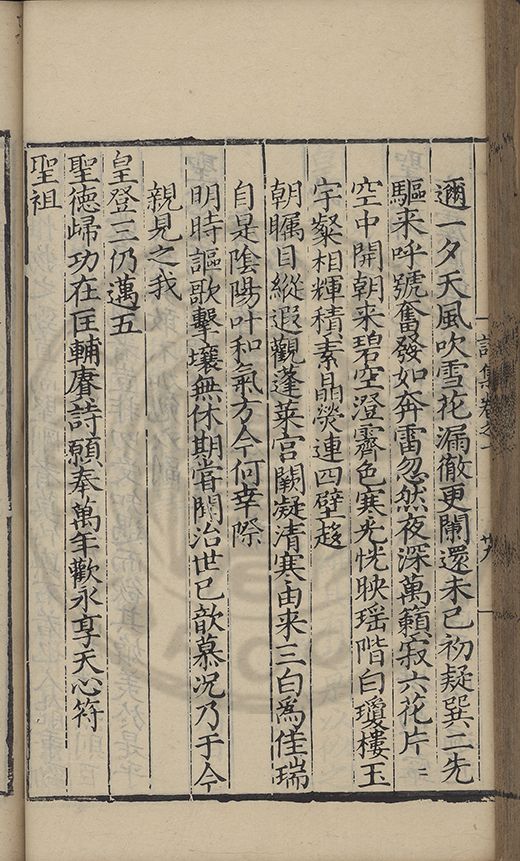 詩集卷之一　廿九
邇一夕天風吹雪花漏徹更闌還未已初疑巽二先
驅来呼號奮發如奔雷忽然夜深萬籟寂六花片〻
空中開朝来碧空澄霽色寒光恍映瑶階白瓊樓玉
宇粲相輝積素晶熒連四壁趍
朝矚目縱遐觀蓬莱宫闕凝清寒由来三白為佳瑞
自是隂陽叶和氣方今何幸際
明時謳歌擊壤無休期甞聞治世已歆慕况乃于今
親見之我
皇登三仍邁五
聖徳歸功在匡輔賡詩願奉萬年歡永享天心符
聖祖